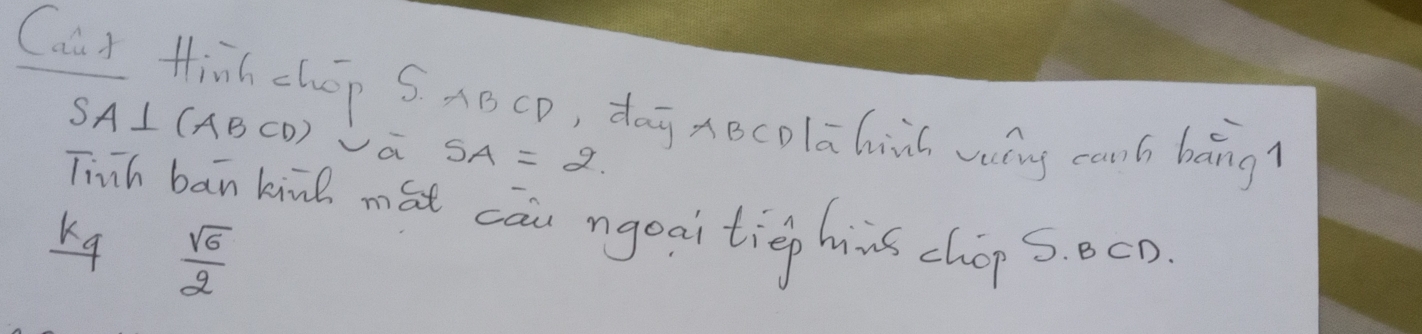 Câu 1 Hình chóp S.ABCD, đáy ABCD là hình vuông cạnh bằng 1
SA⊥(ABCD) và SA = 2.
Tính bán kính mặt cầu ngoại tiếp hình chóp S.BCD.
Kq √6/2